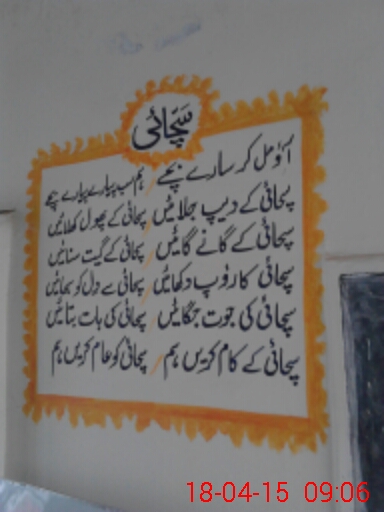 سچّائی
آؤ مل کر سارے بچے / ہم سب پیارے پیارے بچے
سچائی کے دیپ جلائیں سچائی کے پھول کھلائیں
سچائی کے گانے گائیں سچائی کے گیت سنائیں
سچائی کا روپ دکھائیں سچائی سے دل کو سجائیں
سچائی کی جوت جگائیں سچائی کی بات بتائیں
سچائی کے کام کریں ہم / سچائی کو عام کریں ہم
18-04-15 09:06